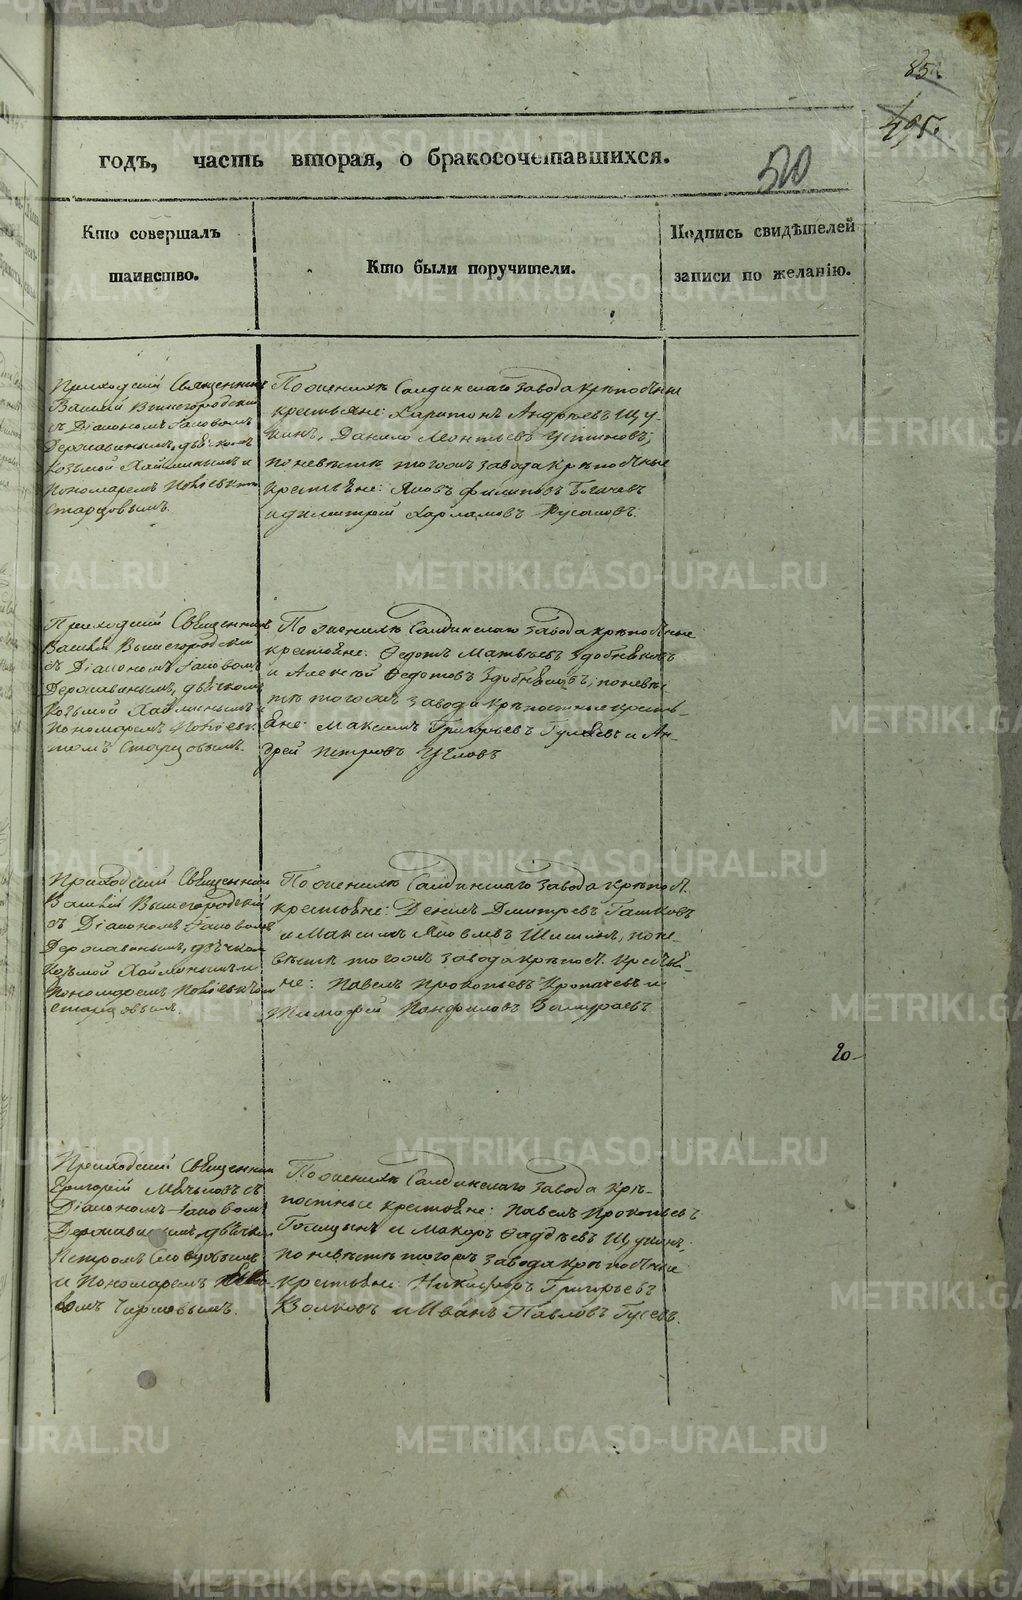 METRIKI.GASO-URAL.RU
85
495.
годъ, часть вторая, о бракосочетавшихся.
500
Кто совершалъ
таинство.
Кто были поручители.
Подпись свидѣтелей
записи по желанію.
Приходскій Священникъ
Василій Вышегородскій
съ Діакономъ Іаковомъ
Державинымъ, дьячкомъ
Козьмой Хайминымъ и
Пономаремъ
Старцовымъ.
По женихѣ Салдинскаго завода крѣпостные
крестьяне: Харитонъ Андрѣевъ Щу-
кинъ, Данило Леонтьевъ Устиновъ;
по невѣстѣ тогожъ завода крѣпостные
крестьяне: Яковъ Филиповъ
и Димитрій Харламовъ Русаковъ.
Приходскій Священникъ
Василій Вышегородскій
съ Діакономъ Іаковомъ
Державинымъ, дьячкомъ
Козьмой Хайминымъ и
Пономаремъ
Старцовымъ.
По женихѣ Салдинскаго завода крѣпостные
крестьяне: Федотъ Матвѣевъ Здобняковъ
и Алексѣй Федотовъ Здобняковъ; по невѣс-
тѣ тогожъ завода крѣпостные кресть-
яне: Максимъ Григорьевъ Гуляевъ и Ан-
дрей Петровъ Угловъ
Приходскій Священникъ
Василій Вышегородскій
съ Діакономъ Іаковомъ
Державинымъ, дьячкомъ
Козьмой Хайминымъ и
Пономаремъ
Старцовымъ.
По женихѣ Салдинскаго завода крѣпост.
крестьяне: Денисъ Дмитріевъ Гашковъ
и Максимъ Яковлевъ Шишкинъ, по не-
вѣстѣ тогожъ завода крѣпост. крестья-
не: Павелъ Прокопьевъ Кропачевъ и
Тимофей Панфиловъ Замураевъ
20
Приходскій Священникъ
Григорій съ
Діакономъ Іаковомъ
Державинымъ, дьячкомъ
Петромъ Словцовымъ
и Пономаремъ
По женихѣ Салдинскаго завода крѣ-
постные крестьяне: Павелъ Прокопьевъ
Голицынъ и Макаръ Фаддѣевъ Щукинъ,
по невѣстѣ тогожъ завода крѣпостные
крестьяне: Никифоръ Григорьевъ
Волковъ и Иванъ Павловъ Гусевъ.